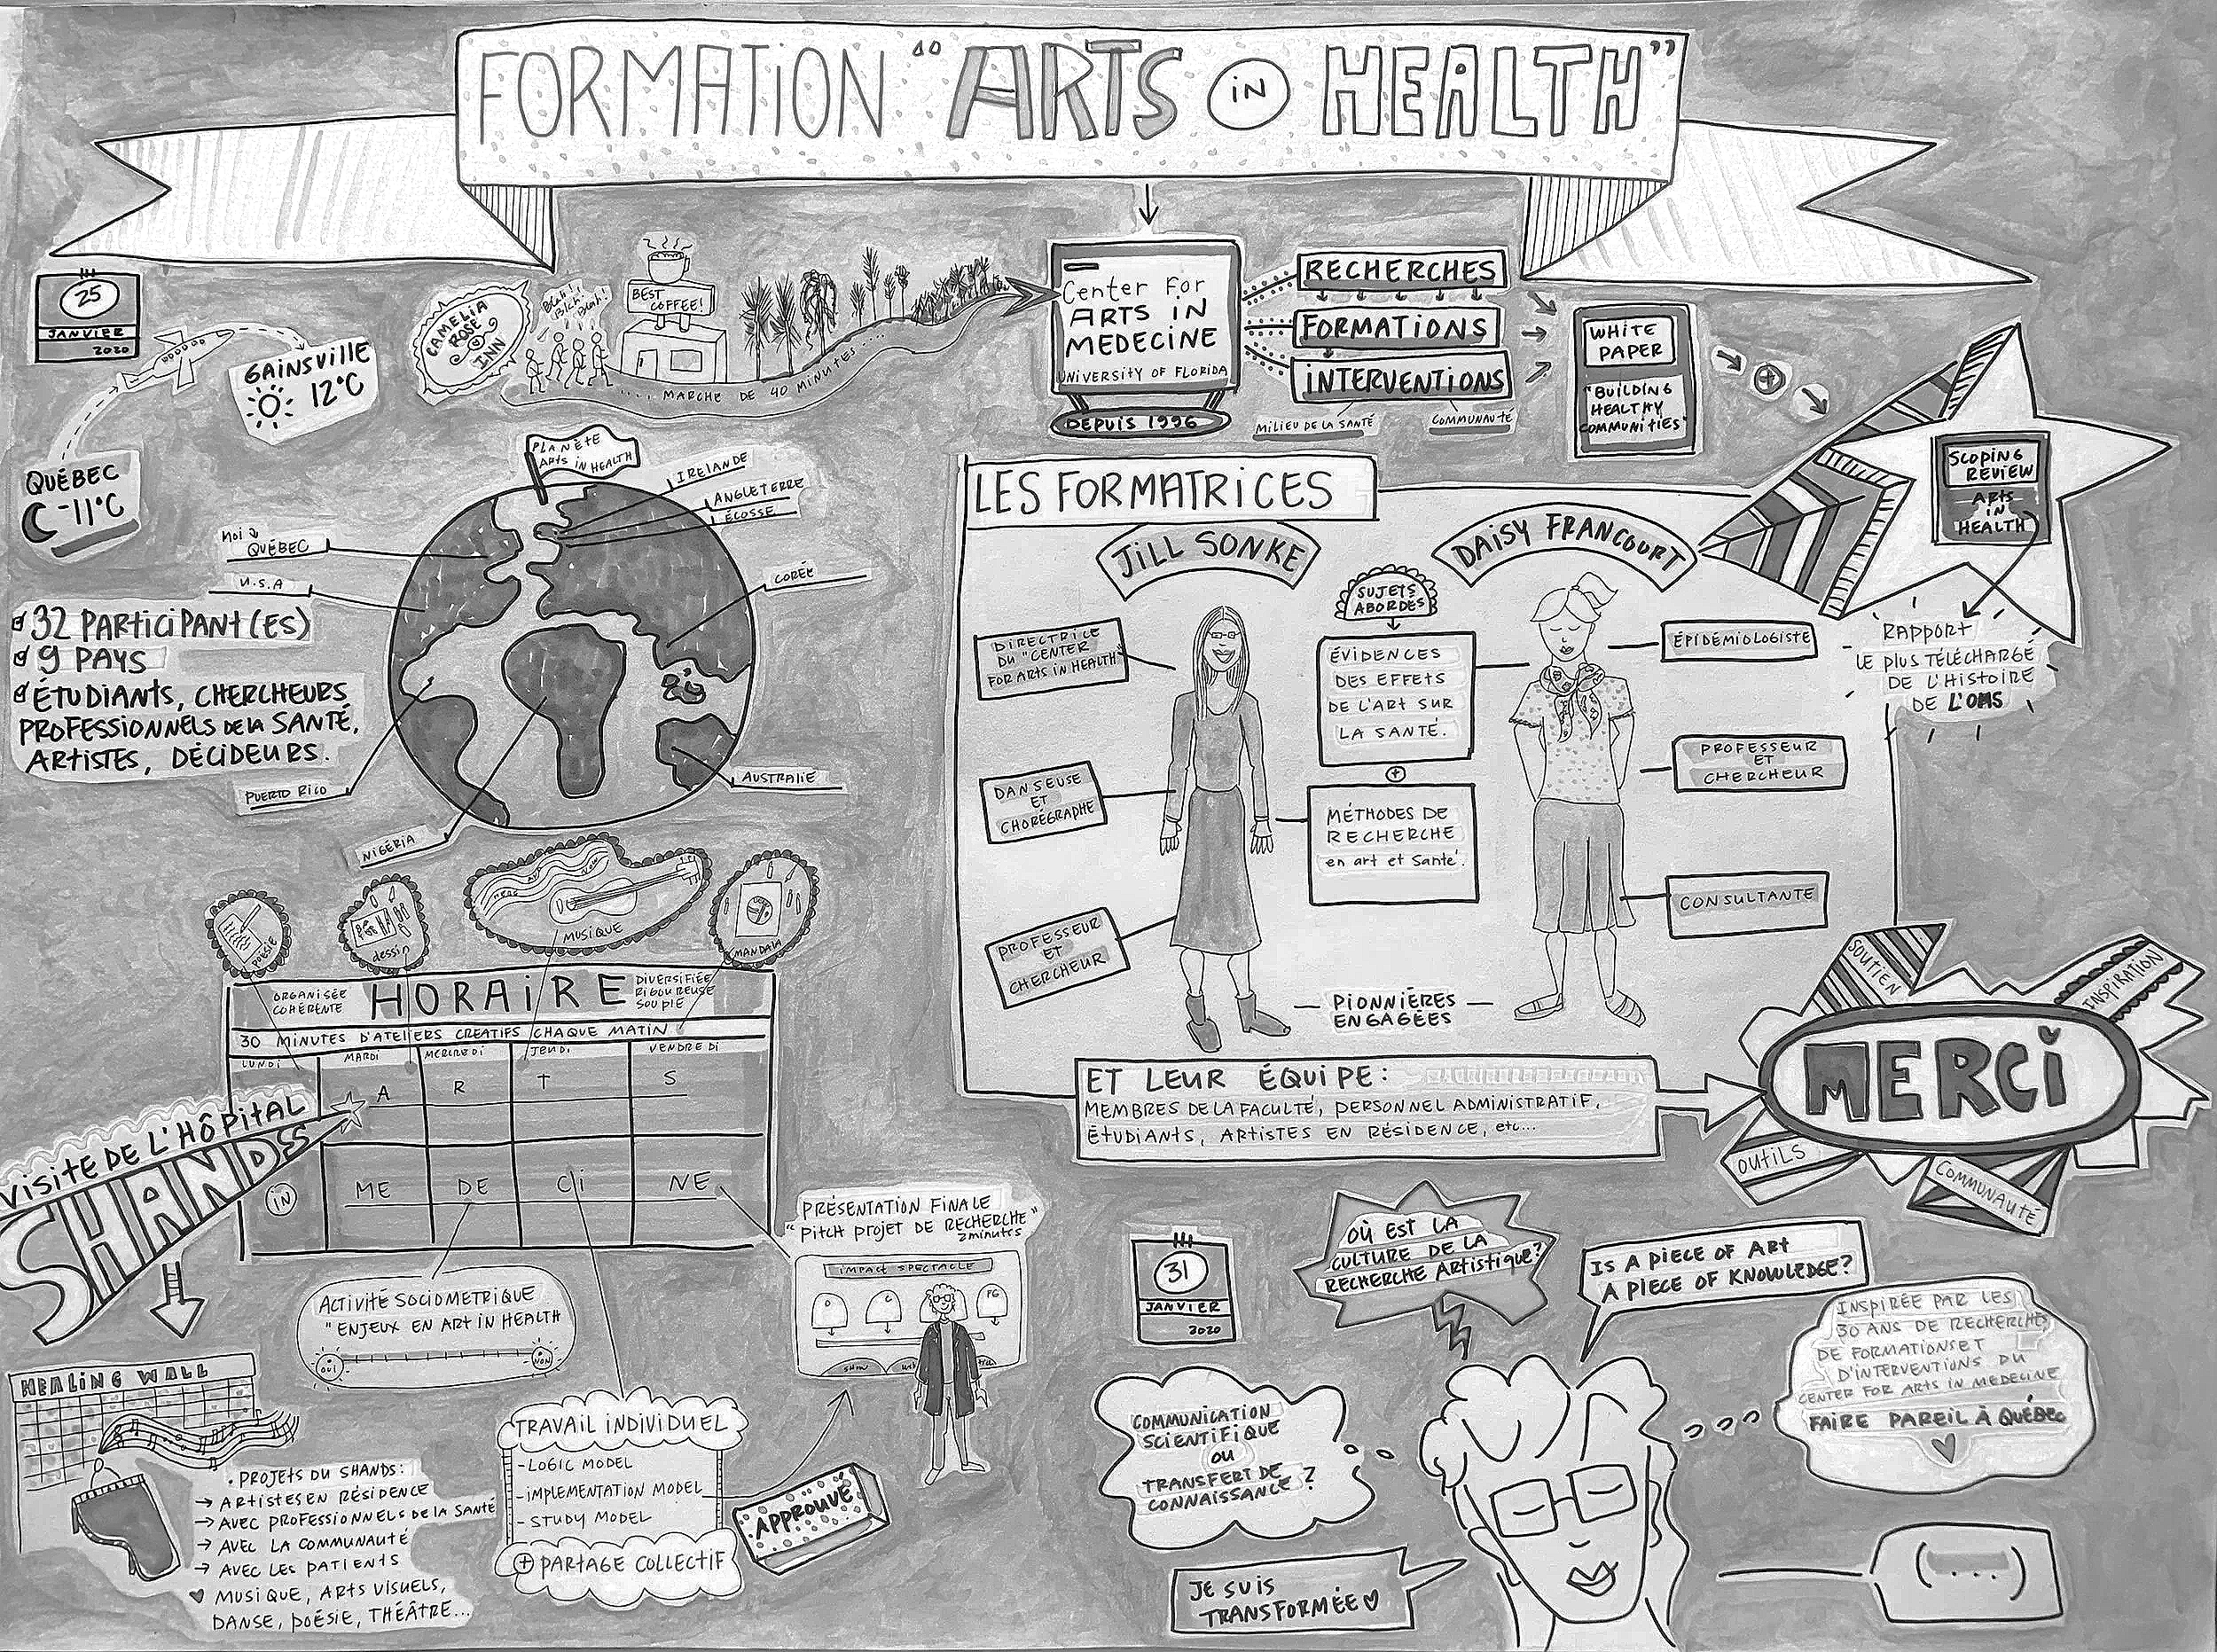 FORMATION "ARTS IN HEALTH"
25
JANVIER
2020
GAINSVILLE
12°C
QUÉBEC
-11°C
CAMELIA
ROSE
INN
Blah!
Blah!
Blah!
BEST
COFFEE!
.... MARCHE DE 40 MINUTES ....
Center For
ARTS IN
MEDECINE
UNIVERSITY OF FLORIDA
DEPUIS 1996
RECHERCHES
FORMATIONS
INTERVENTIONS
MILIEU DE LA SANTÉ
COMMUNAUTÉ
WHITE
PAPER
"BUILDING
HEALTHY
COMMUNITIES"
+
SCOPING
REVIEW
ARTS
IN
HEALTH
RAPPORT
LE PLUS TÉLÉCHARGÉ
DE L'HISTOIRE
DE L'OMS
PLANÈTE
ARTS IN HEALTH
IRELANDE
ANGLETERRE
ÉCOSSE
MOI
QUÉBEC
U.S.A
CORÉE
PUERTO RICO
NIGÉRIA
AUSTRALIE
32 PARTICIPANT(ES)
9 PAYS
ÉTUDIANTS, CHERCHEURS
PROFESSIONNELS DE LA SANTÉ,
ARTISTES, DÉCIDEURS.
LES FORMATRICES
JILL SONKE
DAISY FRANCOURT
DIRECTRICE
DU "CENTER
FOR ARTS IN HEALTH"
DANSEUSE
ET
CHORÉGRAPHE
PROFESSEUR
ET
CHERCHEUR
SUJETS
ABORDÉS
ÉVIDENCES
DES EFFETS
DE L'ART SUR
LA SANTÉ.
+
MÉTHODES DE
RECHERCHE
en art et santé.
ÉPIDÉMIOLOGISTE
PROFESSEUR
ET
CHERCHEUR
CONSULTANTE
PIONNIÈRES
ENGAGÉES
ET LEUR ÉQUIPE:
MEMBRES DE LA FACULTÉ, PERSONNEL ADMINISTRATIF,
ÉTUDIANTS, ARTISTES EN RÉSIDENCE, etc...
SOUTIEN
INSPIRATION
MERCI
OUTILS
COMMUNAUTÉ
POÉSIE
dessin
MUSIQUE
MANDALA
ORGANISÉE
COHÉRENTE
HORAIRE
DIVERSIFIÉE
RIGOUREUSE
SOUPLE
30 MINUTES D'ATELIERS CREATIFS CHAQUE MATIN
LUNDI MARDI MERCREDI JEUDI VENDREDI
A R T S
IN
ME DE Ci NE
VISITE DE L'HÔPITAL
SHANDS
HEALING WALL
. PROJETS DU SHANDS:
→ ARTISTES EN RÉSIDENCE
→ AVEC PROFESSIONNELS DE LA SANTÉ
→ AVEC LA COMMUNAUTÉ
→ AVEC LES PATIENTS
♥ MUSIQUE, ARTS VISUELS,
DANSE, POÉSIE, THÉÂTRE...
ACTIVITÉ SOCIOMETRIQUE
"ENJEUX EN ART IN HEALTH
OUI
NON
TRAVAIL INDIVIDUEL
- LOGIC MODEL
- IMPLEMENTATION MODEL
- STUDY MODEL
+ PARTAGE COLLECTIF
APPROUVÉ
PRÉSENTATION FINALE
"PITCH PROJET DE RECHERCHE"
2 minutes
IMPACT SPECTACLE
D
C
FG
31
JANVIER
2020
OÙ EST LA
CULTURE DE LA
RECHERCHE ARTISTIQUE?
IS A PIECE OF ART
A PIECE OF KNOWLEDGE?
INSPIRÉE PAR LES
30 ANS DE RECHERCHE,
DE FORMATIONS ET
D'INTERVENTIONS DU
CENTER FOR ARTS IN MEDECINE
FAIRE PAREIL À QUÉBEC
COMMUNICATION
SCIENTIFIQUE
OU
TRANSFERT DE
CONNAISSANCE?
JE SUIS
TRANSFORMÉE ♡
(...)